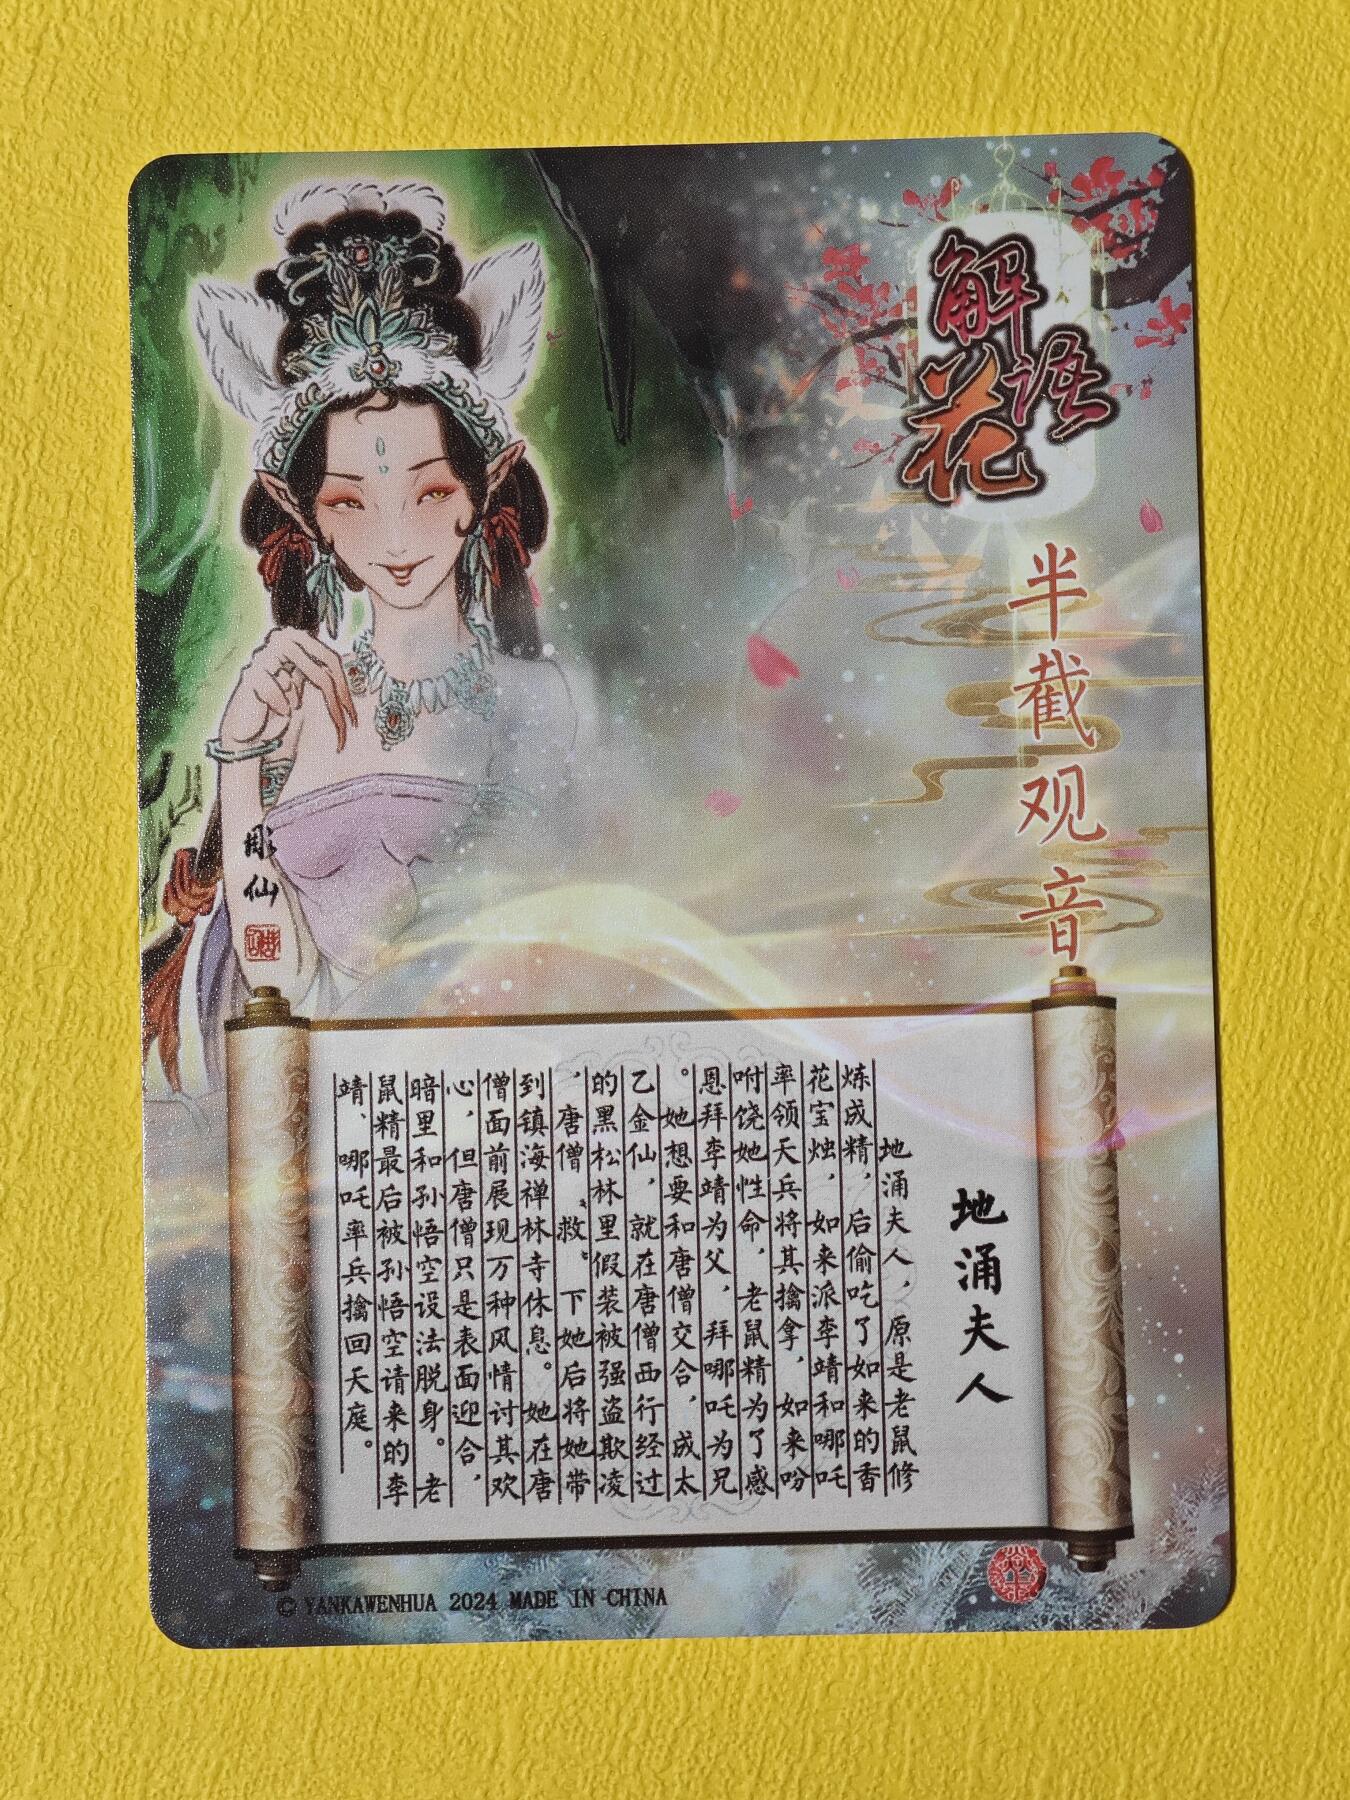 解语花
半截观音
地涌夫人
地涌夫人，原是老鼠修
炼成精，后偷吃了如来的香
花宝烛，如来派李靖和哪吒
率领天兵将其擒拿，如来吩
咐饶她性命，老鼠精为了感
恩拜李靖为父，拜哪吒为兄
。她想要和唐僧交合，成太
乙金仙，就在唐僧西行经过
的黑松林里假装被强盗欺凌
，唐僧“救”下她后将她带
到镇海禅林寺休息。她在唐
僧面前展现万种风情讨其欢
心，但唐僧只是表面迎合，
暗里和孙悟空设法脱身。老
鼠精最后被孙悟空请来的李
靖、哪吒率兵擒回天庭。
彫仙
© YANKAWENHUA 2024 MADE IN CHINA